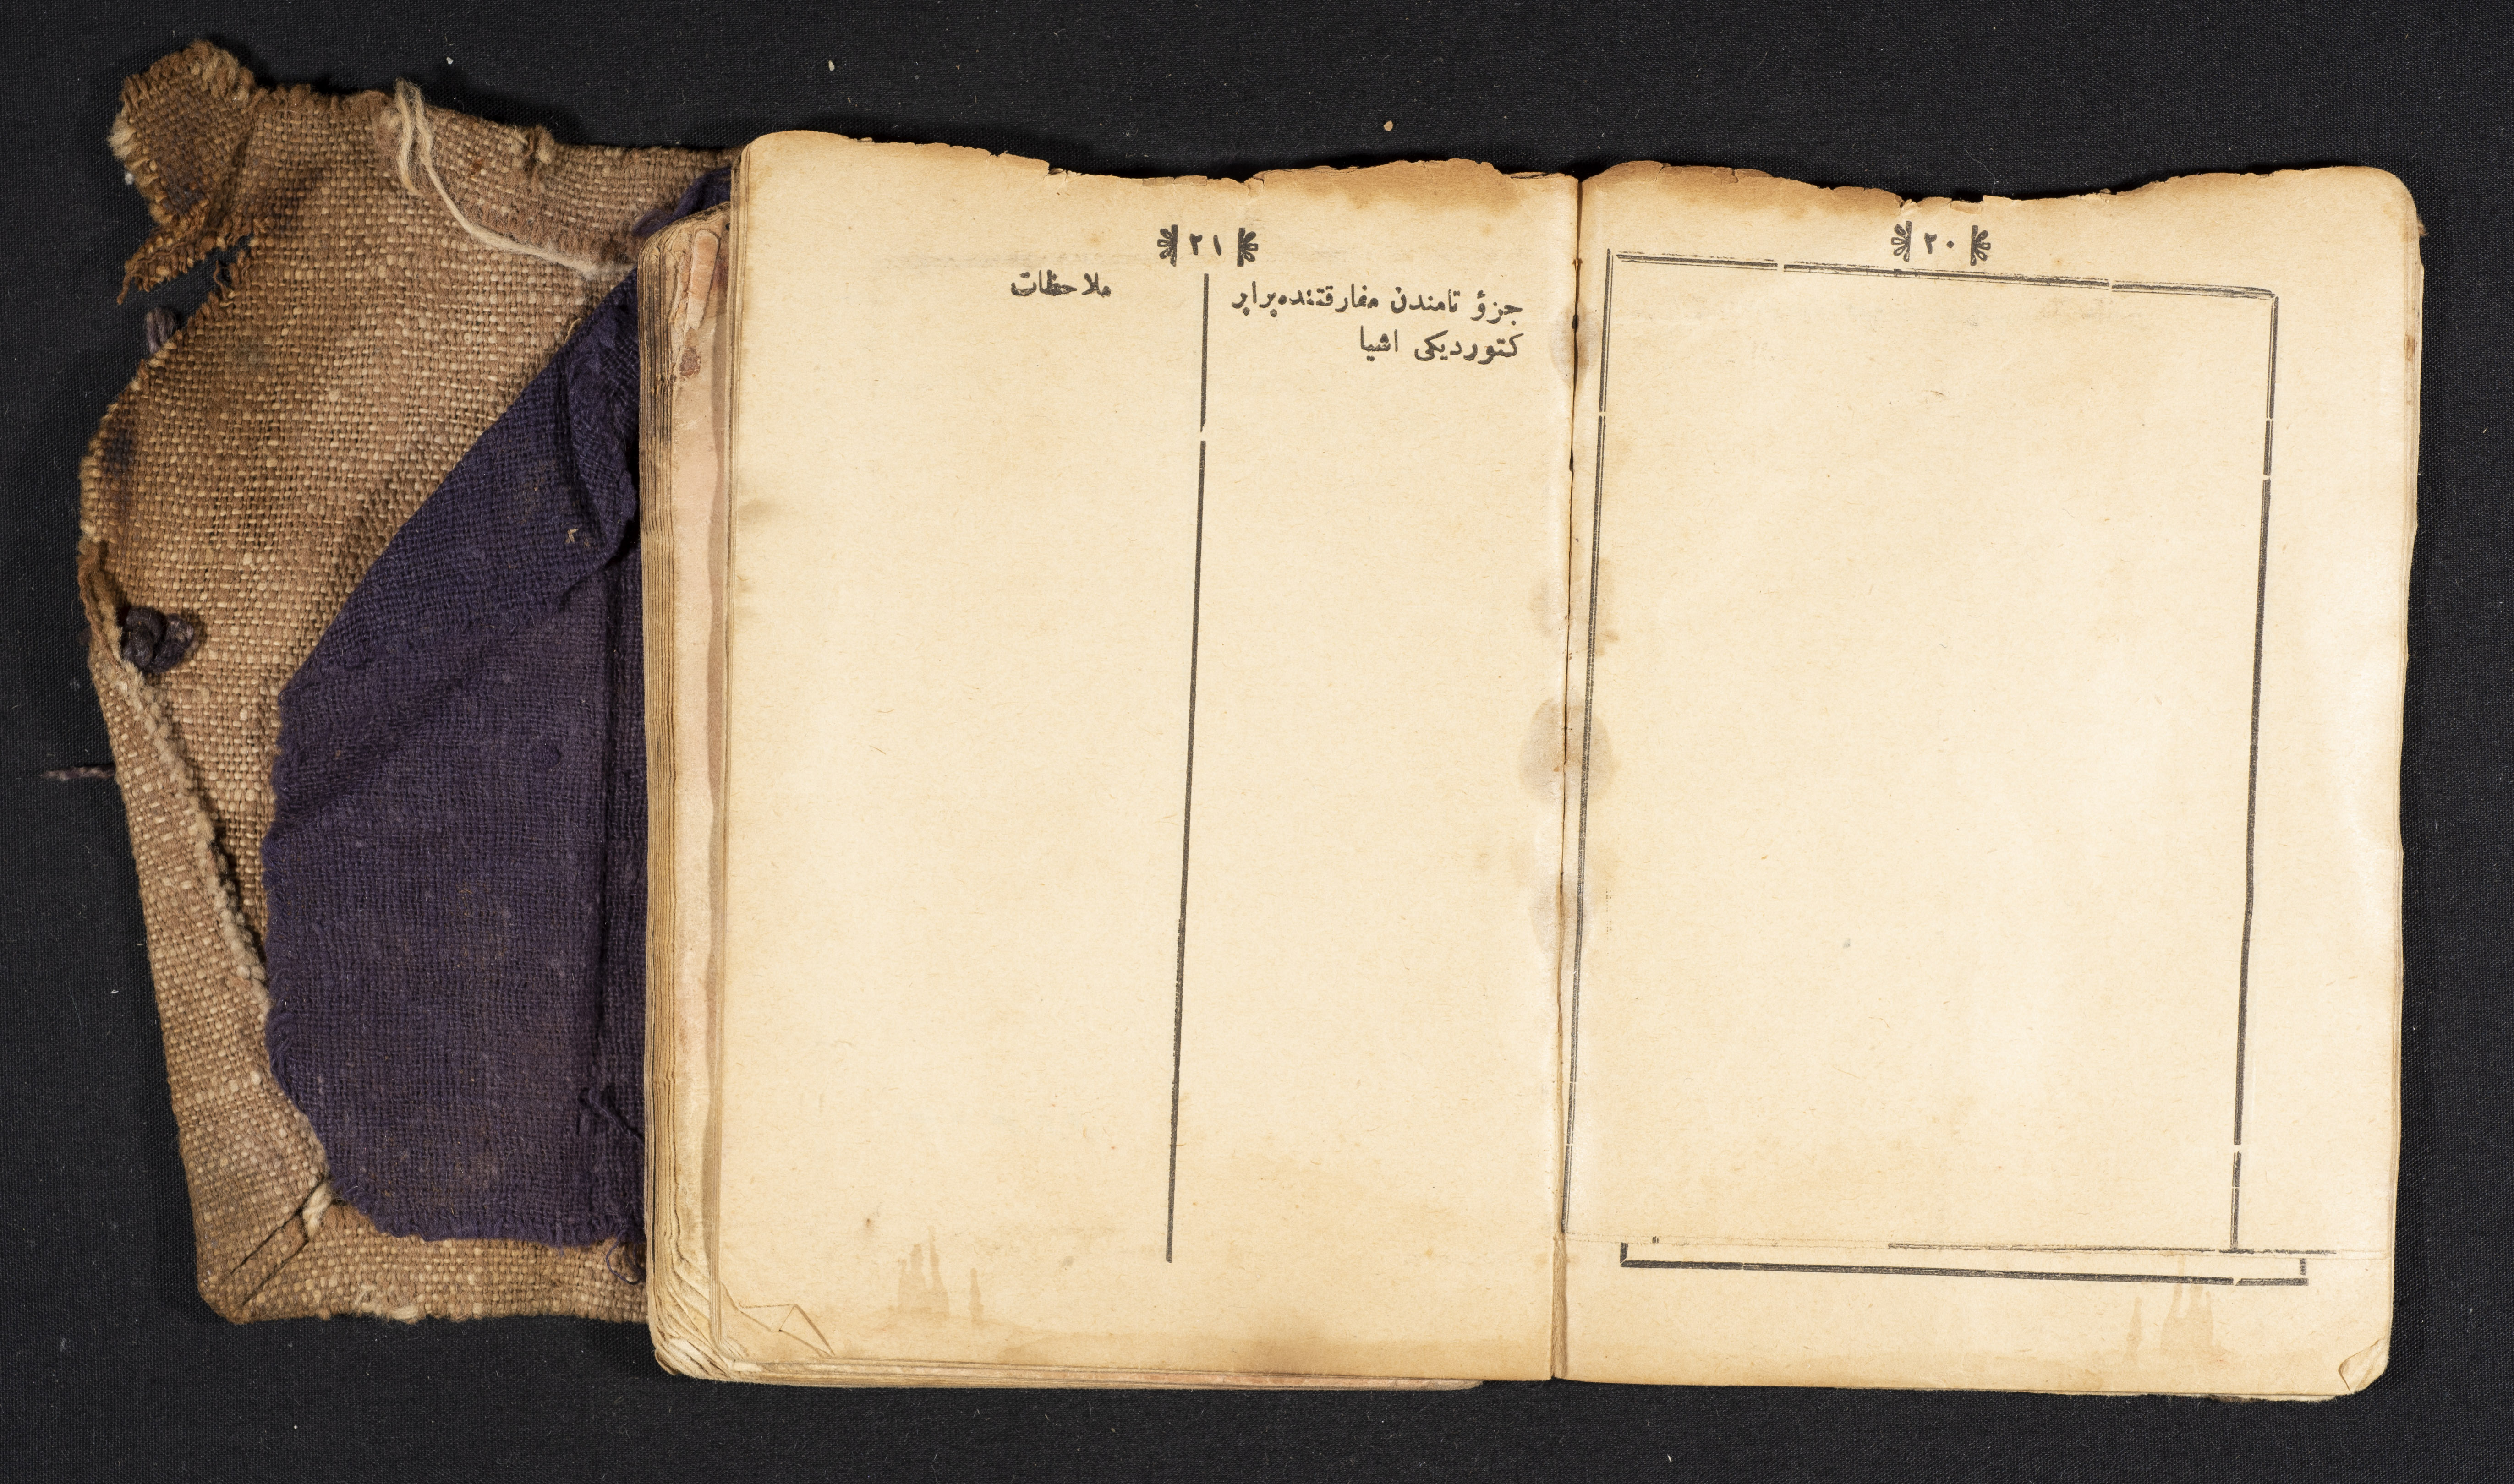 ٢٠
٢١
جزؤ تامندن مفارقتنده برابر
كتورديكى اشيا
ملاحظات